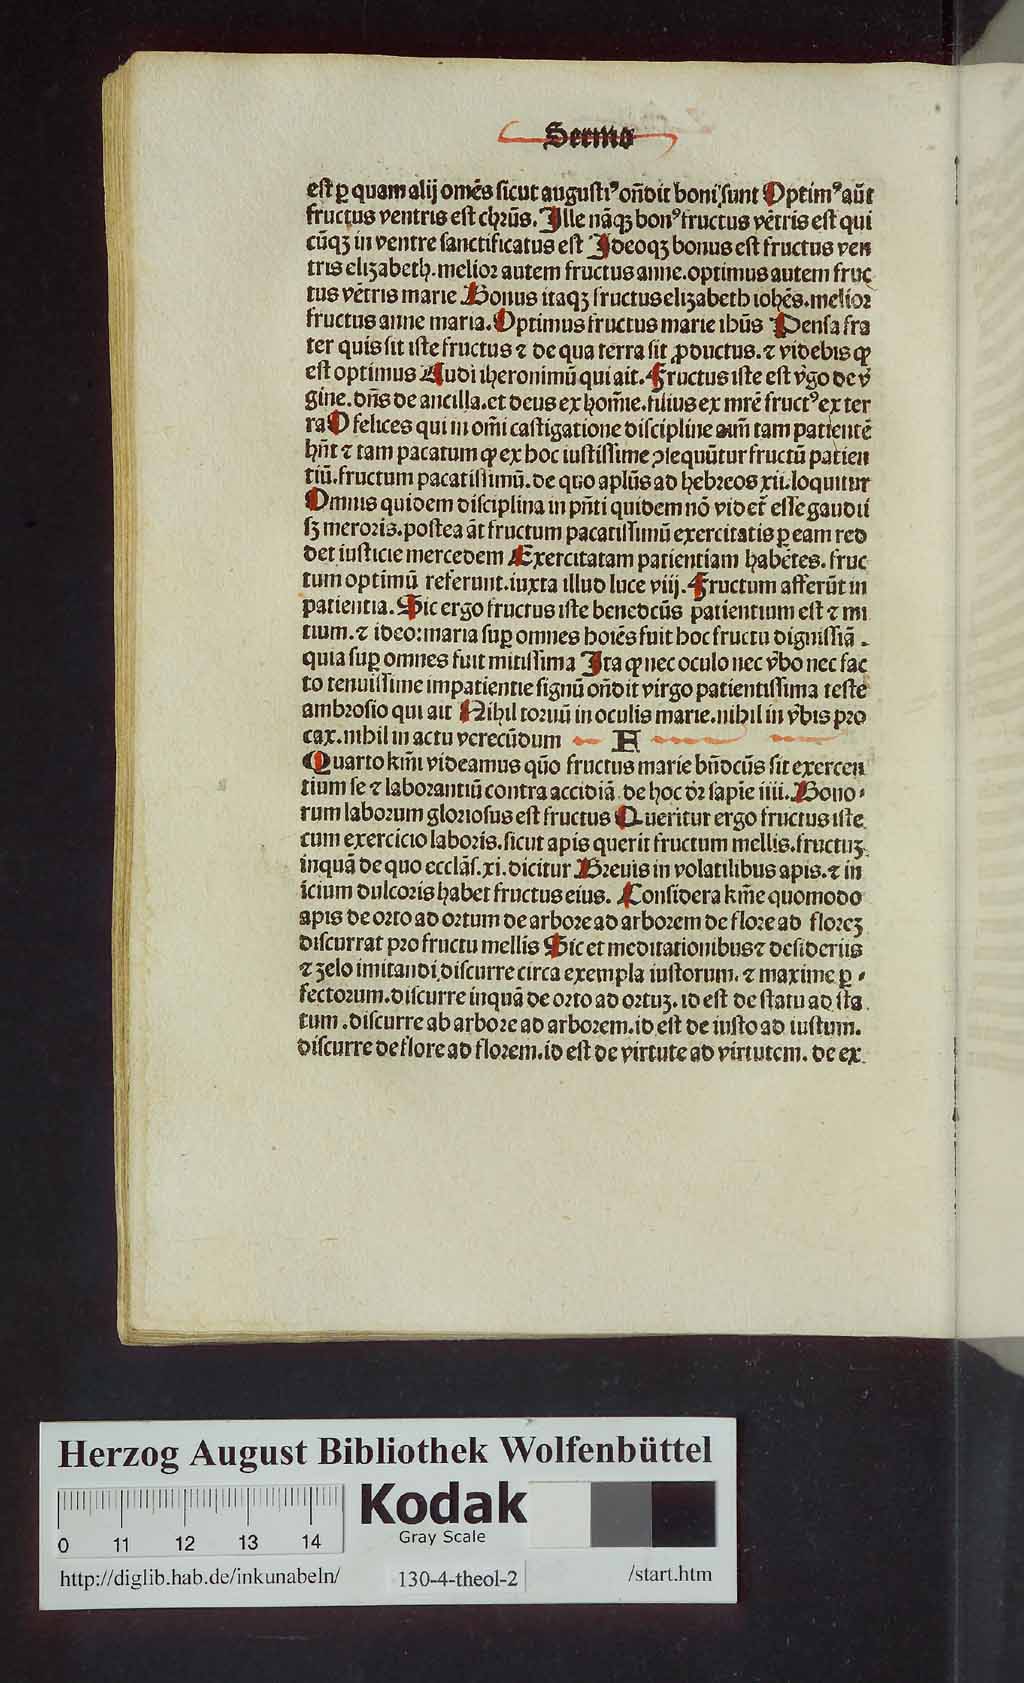 Sermo
est ꝑ quam alij omēs sicut augustiꝰ oñdit boni sunt Optimꝰ aūt
fructus ventris est chrūs. Ille nāqꝫ bonꝰ fructus vētris est qui
cūqꝫ in ventre sanctificatus est Ideoqꝫ bonus est fructus ven
tris elizabeth. melior autem fructus anne. optimus autem fruc
tus vētris marie Bonus itaqꝫ fructus elizabeth iohēs. melior
fructus anne maria. Optimus fructus marie ihūs Pensa fra
ter quis sit iste fructus ⁊ de qua terra sit ꝓductus. ⁊ videbis ꝙ
est optimus Audi iheronimū qui ait. Fructus iste est v̄go de v̄
gine. dn̄s de ancilla. et deus ex hom̄ie. filius ex mrē fructꝰ ex ter
ra O felices qui in om̄i castigatione discipline aīm tam patientē
hn̄t ⁊ tam pacatum ꝙ ex hoc iustissime ꝯsequūtur fructū patien
tiū. fructum pacatissimū. de quo aplūs ad hebreos xii. loquitur
Omnis quidem disciplina in pn̄ti quidem nō videt̄ esse gaudii
sꝫ meroris. postea āt fructum pacatissimū exercitatis ꝑ eam red
det iusticie mercedem Exercitatam patientiam habētes. fruc
tum optimū referunt. iuxta illud luce viij. Fructum afferūt in
patientia. Sic ergo fructus iste benedcūs patientium est ⁊ mi
tium. ⁊ ideo: maria suꝑ omnes hoiēs fuit hoc fructu dignissiā.
quia suꝑ omnes fuit mitissima Ita ꝙ nec oculo nec v̄bo nec fac
to tenuissime impatientie signū oñdit virgo patientissima teste
ambrosio qui ait Nihil toruū in oculis marie. nihil in v̄bis pro
cax. nihil in actu verecūdum H
Quarto km̄i videamus quō fructus marie bn̄dcūs sit exercen
tium se ⁊ laborantiū contra accidiā de hoc dr̄ sapiē iiii. Bono⸗
rum laborum gloriosus est fructus Queritur ergo fructus iste
cum exercicio laboris. sicut apis querit fructum mellis. fructuꝫ
inquā de quo ecclās. xi. dicitur Breuis in volatilibus apis. ⁊ in
icium dulcoris habet fructus eius. Considera km̄e quomodo
apis de orto ad ortum de arbore ad arborem de flore ad floreꝫ
discurrat pro fructu mellis Sic et meditationibus ⁊ desideriis
⁊ zelo imitandi discurre circa exempla iustorum. ⁊ maxime ꝑ⸗
fectorum. discurre inquā de orto ad ortuꝫ. id est de statu ad sta
tum. discurre ab arbore ad arborem. id est de iusto ad iustum.
discurre de flore ad florem. id est de virtute ad virtutem. de ex
Herzog August Bibliothek Wolfenbüttel
Kodak
Gray Scale
0 11 12 13 14
http://diglib.hab.de/inkunabeln/ 130-4-theol-2 /start.htm